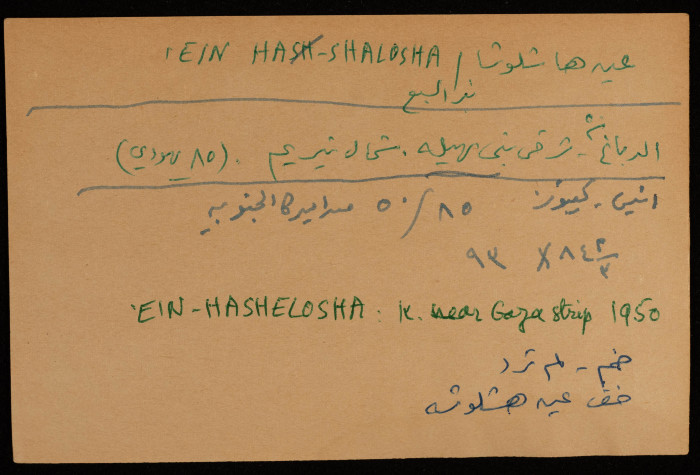 'EIN HASH-SHALOSHA / عين ها شلوشا
بئر السبع
الدباغية - شرقي بني سهيله. شمال نيريم. (٨٥ يهودي)
- كيبوتز ٨٥ / ٥٠ من اميركا الجنوبيه
٩٣ X ٨٤ ٢/٣
'EIN-HASHELOSHA: K. near Gaza strip 1950
خم - لم ترد
عين هشلوشه